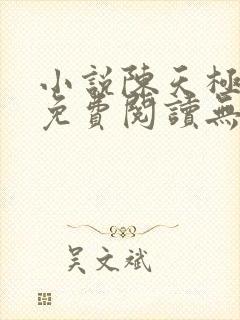 小說陳天極
免費閱讀無
吴文斌